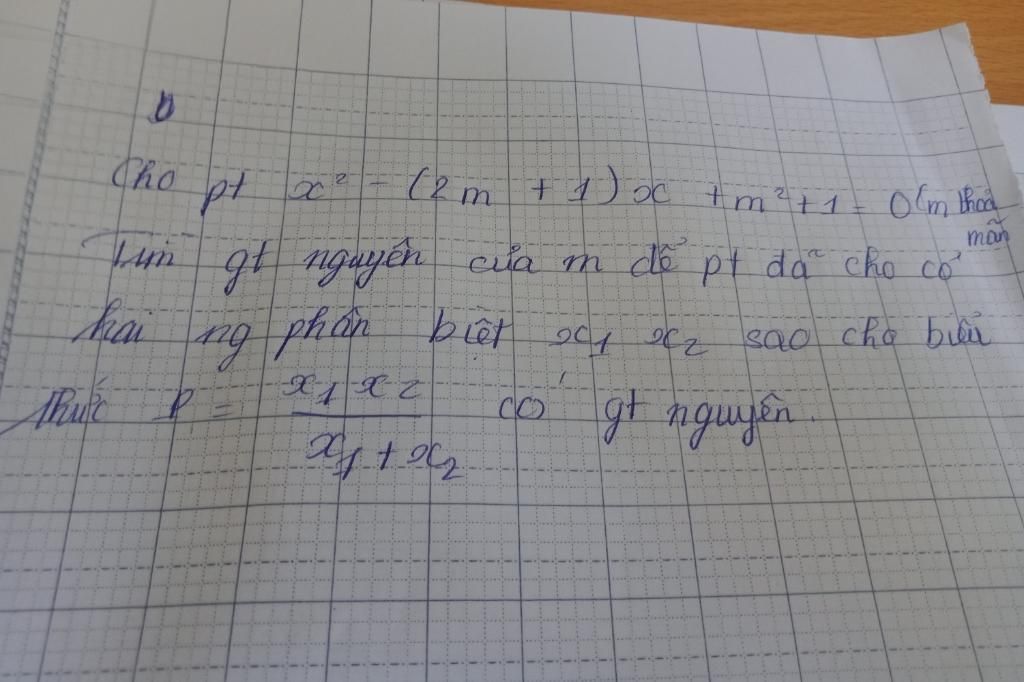 Cho pt x² - (2m + 1)x + m² + 1 = 0 (m thoả
mãn
Tìm gt nguyên của m để pt đã cho có
hai ng phân biệt x₁ x₂ sao cho biểu
thức P = x₁ x₂ / x₁ + x₂ có gt nguyên.